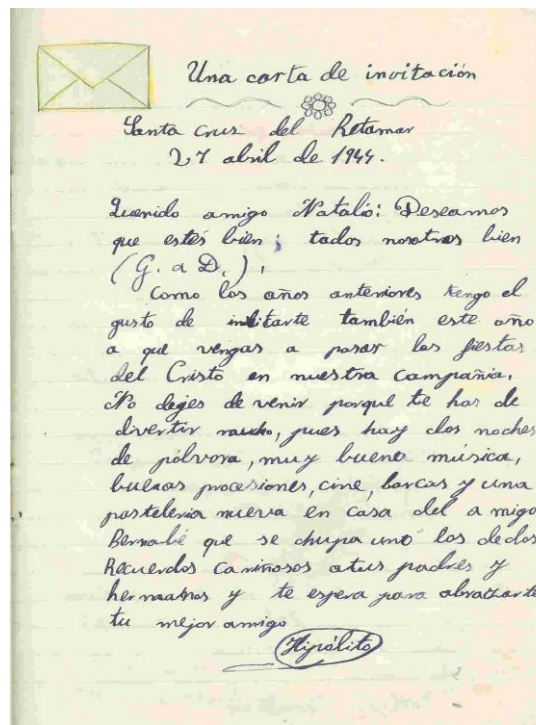 Una carta de invitación
Santa Cruz del Retamar
27 abril de 1944.
Querido amigo Natalio: Deseamos
que estés bien; todos nosotros bien
(G. a D.).
Como los años anteriores tengo el
gusto de invitarte también este año
a que vengas a pasar las fiestas
del Cristo en nuestra compañia.
No dejes de venir porque te has de
divertir mucho, pues hay dos noches
de pólvora, muy buena música,
buenas procesiones, cine, barcas y una
pasteleria nueva en casa del amigo
Bernabé que se chupa uno los dedos
Recuerdos cariñosos a tus padres y
hermanos y te espera para abrazarte
tu mejor amigo
Hipólito